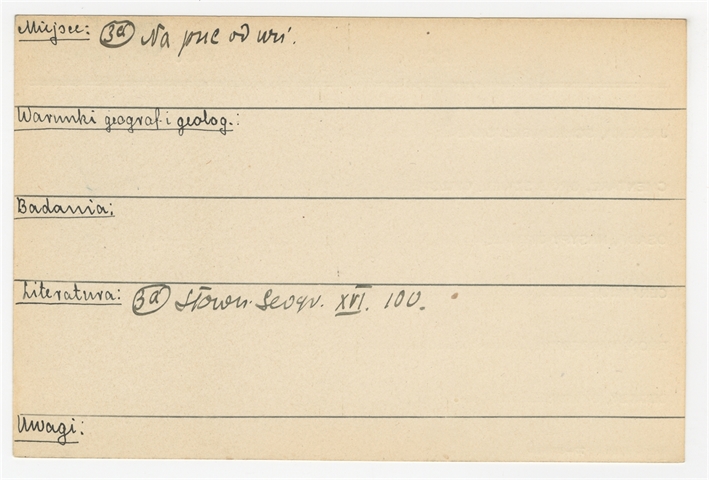 Miejsce: 3a Na płc od wsi.
Warunki geograf. i geolog.:
Badania:
Literatura: 3a Słown. Geogr. XVI. 100.
Uwagi: